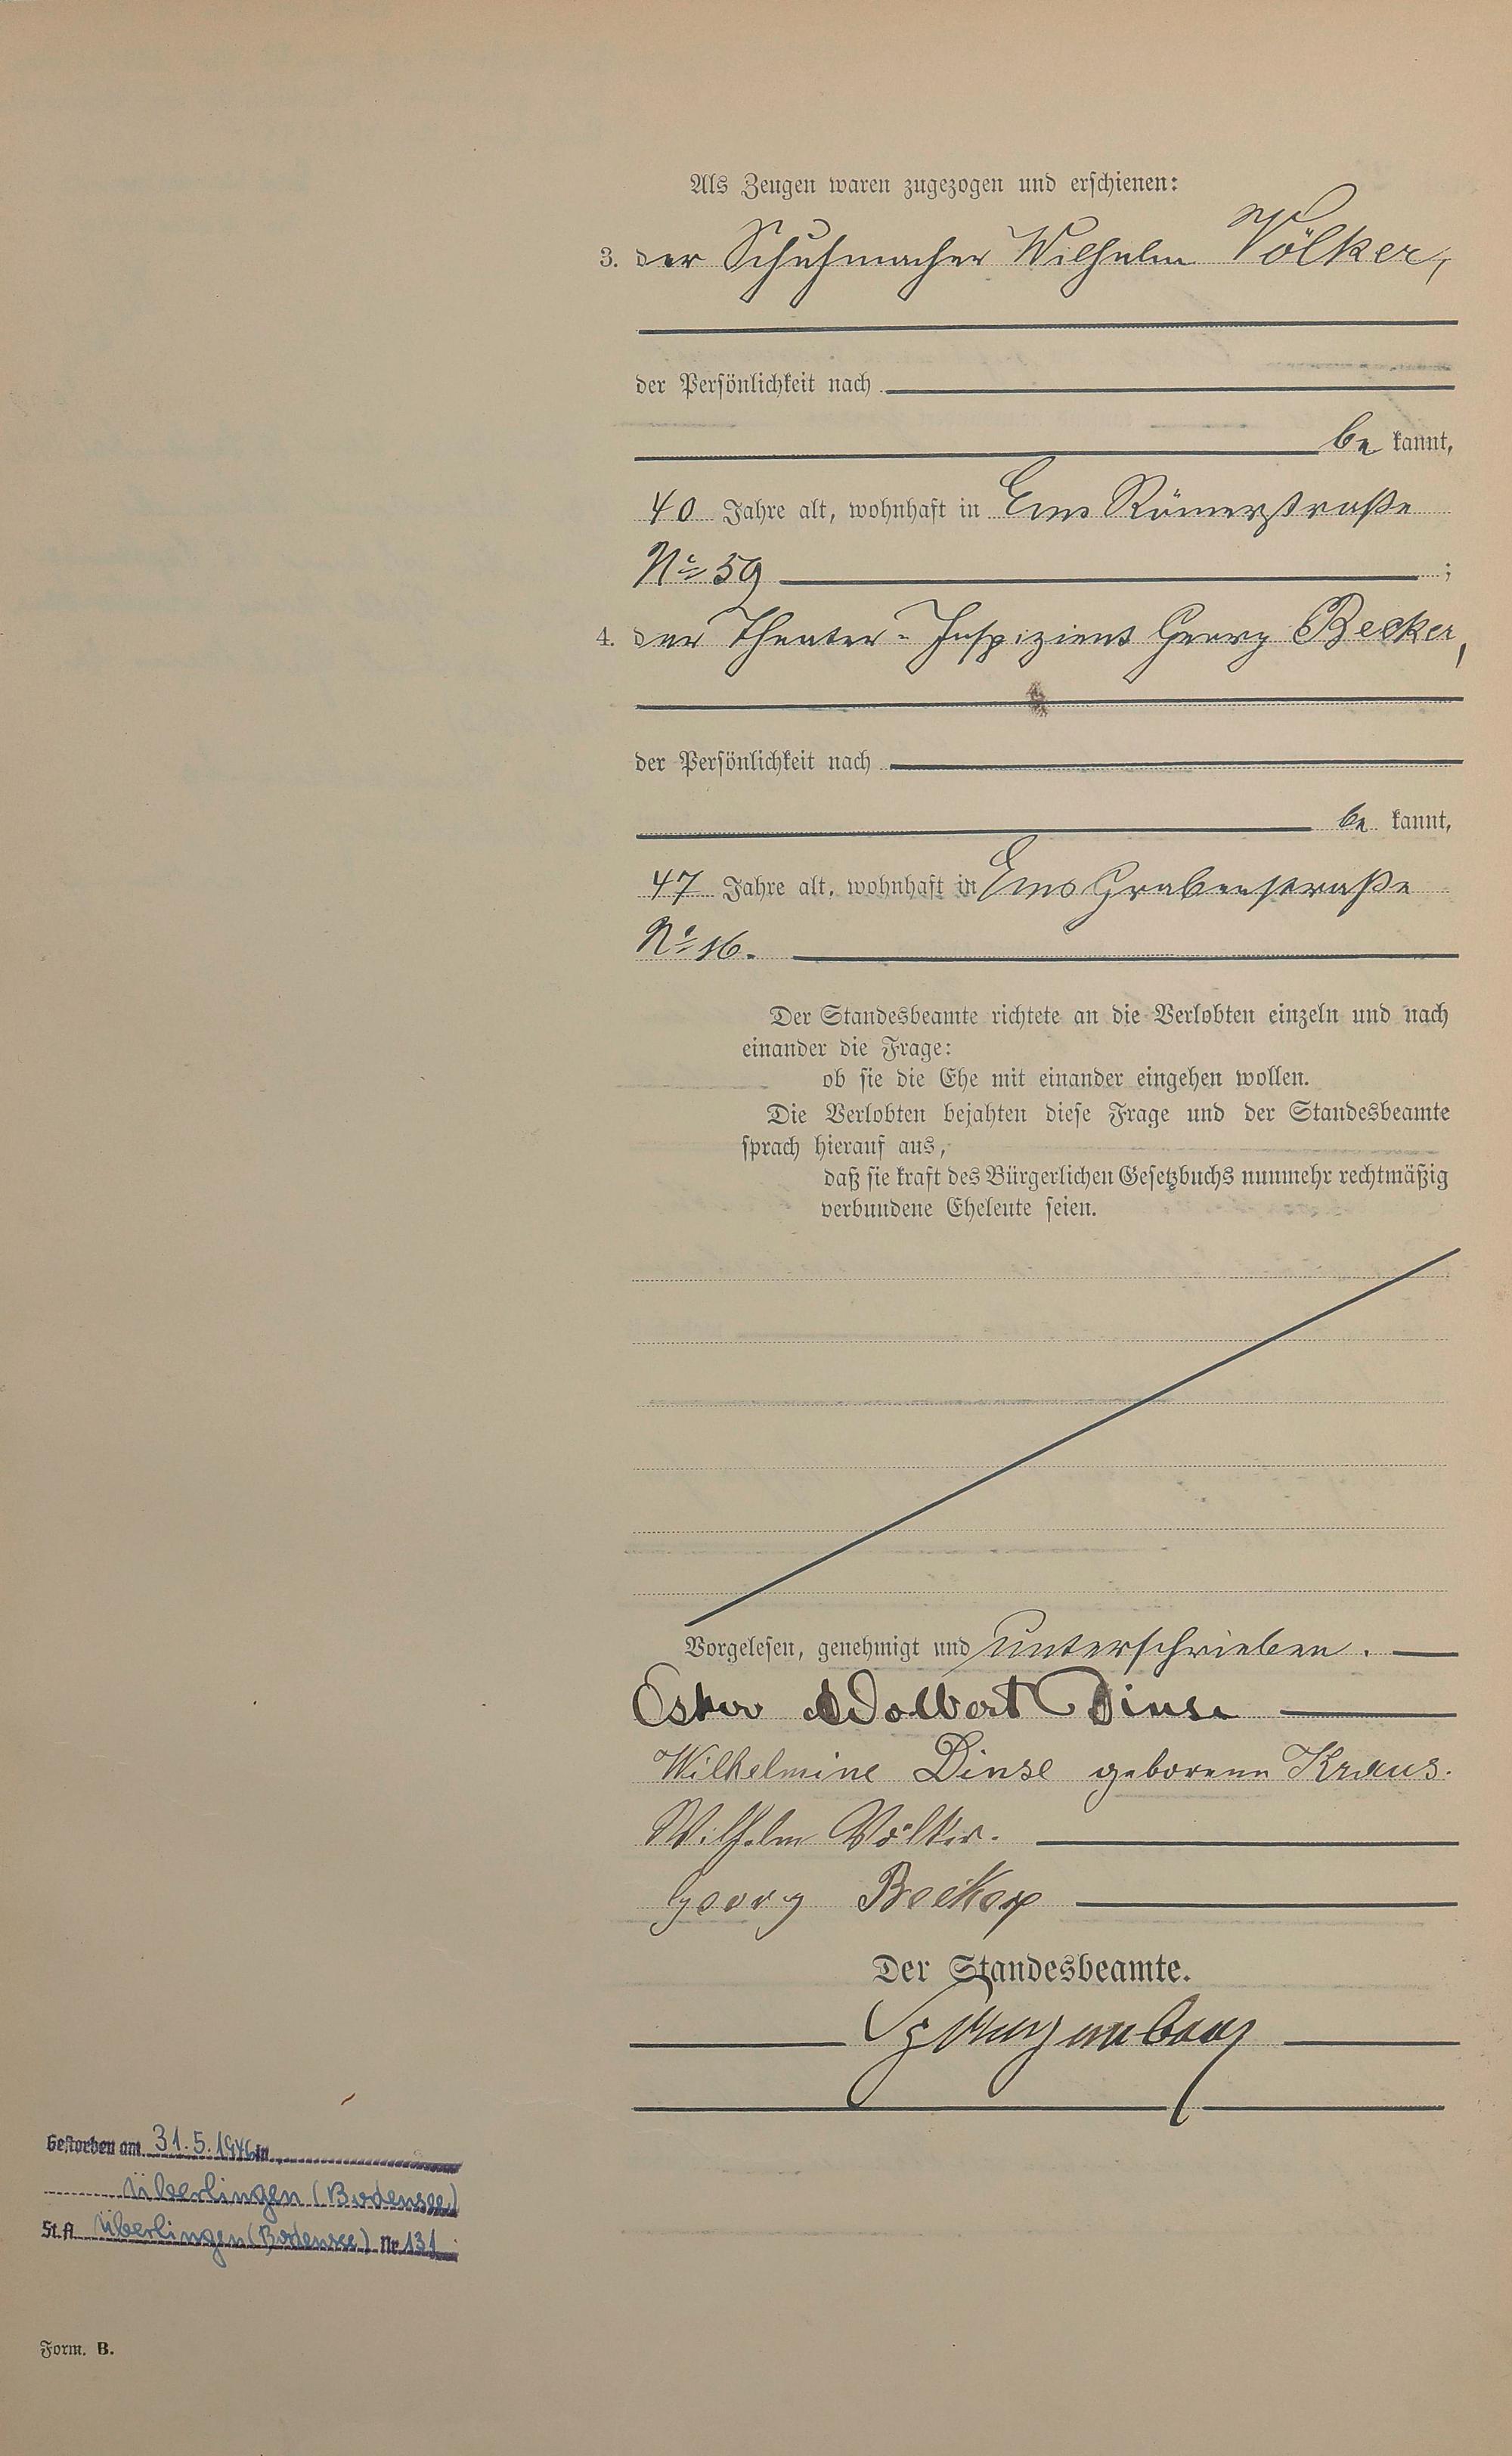 Als Zeugen waren zugezogen und erschienen:
3. der Schuhmacher Wilhelm Völker,
der Persönlichkeit nach
be kannt,
40 Jahre alt, wohnhaft in Ems Römerstraße
No 59 ;
4. der Theater-Inspizient Georg Becker,
der Persönlichkeit nach
be kannt,
47 Jahre alt, wohnhaft in Ems Grabenstraße
No 16.
Der Standesbeamte richtete an die Verlobten einzeln und nach
einander die Frage:
ob sie die Ehe mit einander eingehen wollen.
Die Verlobten bejahten diese Frage und der Standesbeamte
sprach hierauf aus,
daß sie kraft des Bürgerlichen Gesetzbuchs nunmehr rechtmäßig
verbundene Eheleute seien.
Vorgelesen, genehmigt und unterschrieben.
Dinse
Wilhelmine Dinse geborene Kraus.
Wilhelm Völker.
Georg Becker
Der Standesbeamte.
Gestorben am 31.5.1946 in
Überlingen (Bodensee)
St.A Überlingen (Bodensee) Nr 131
Form. B.